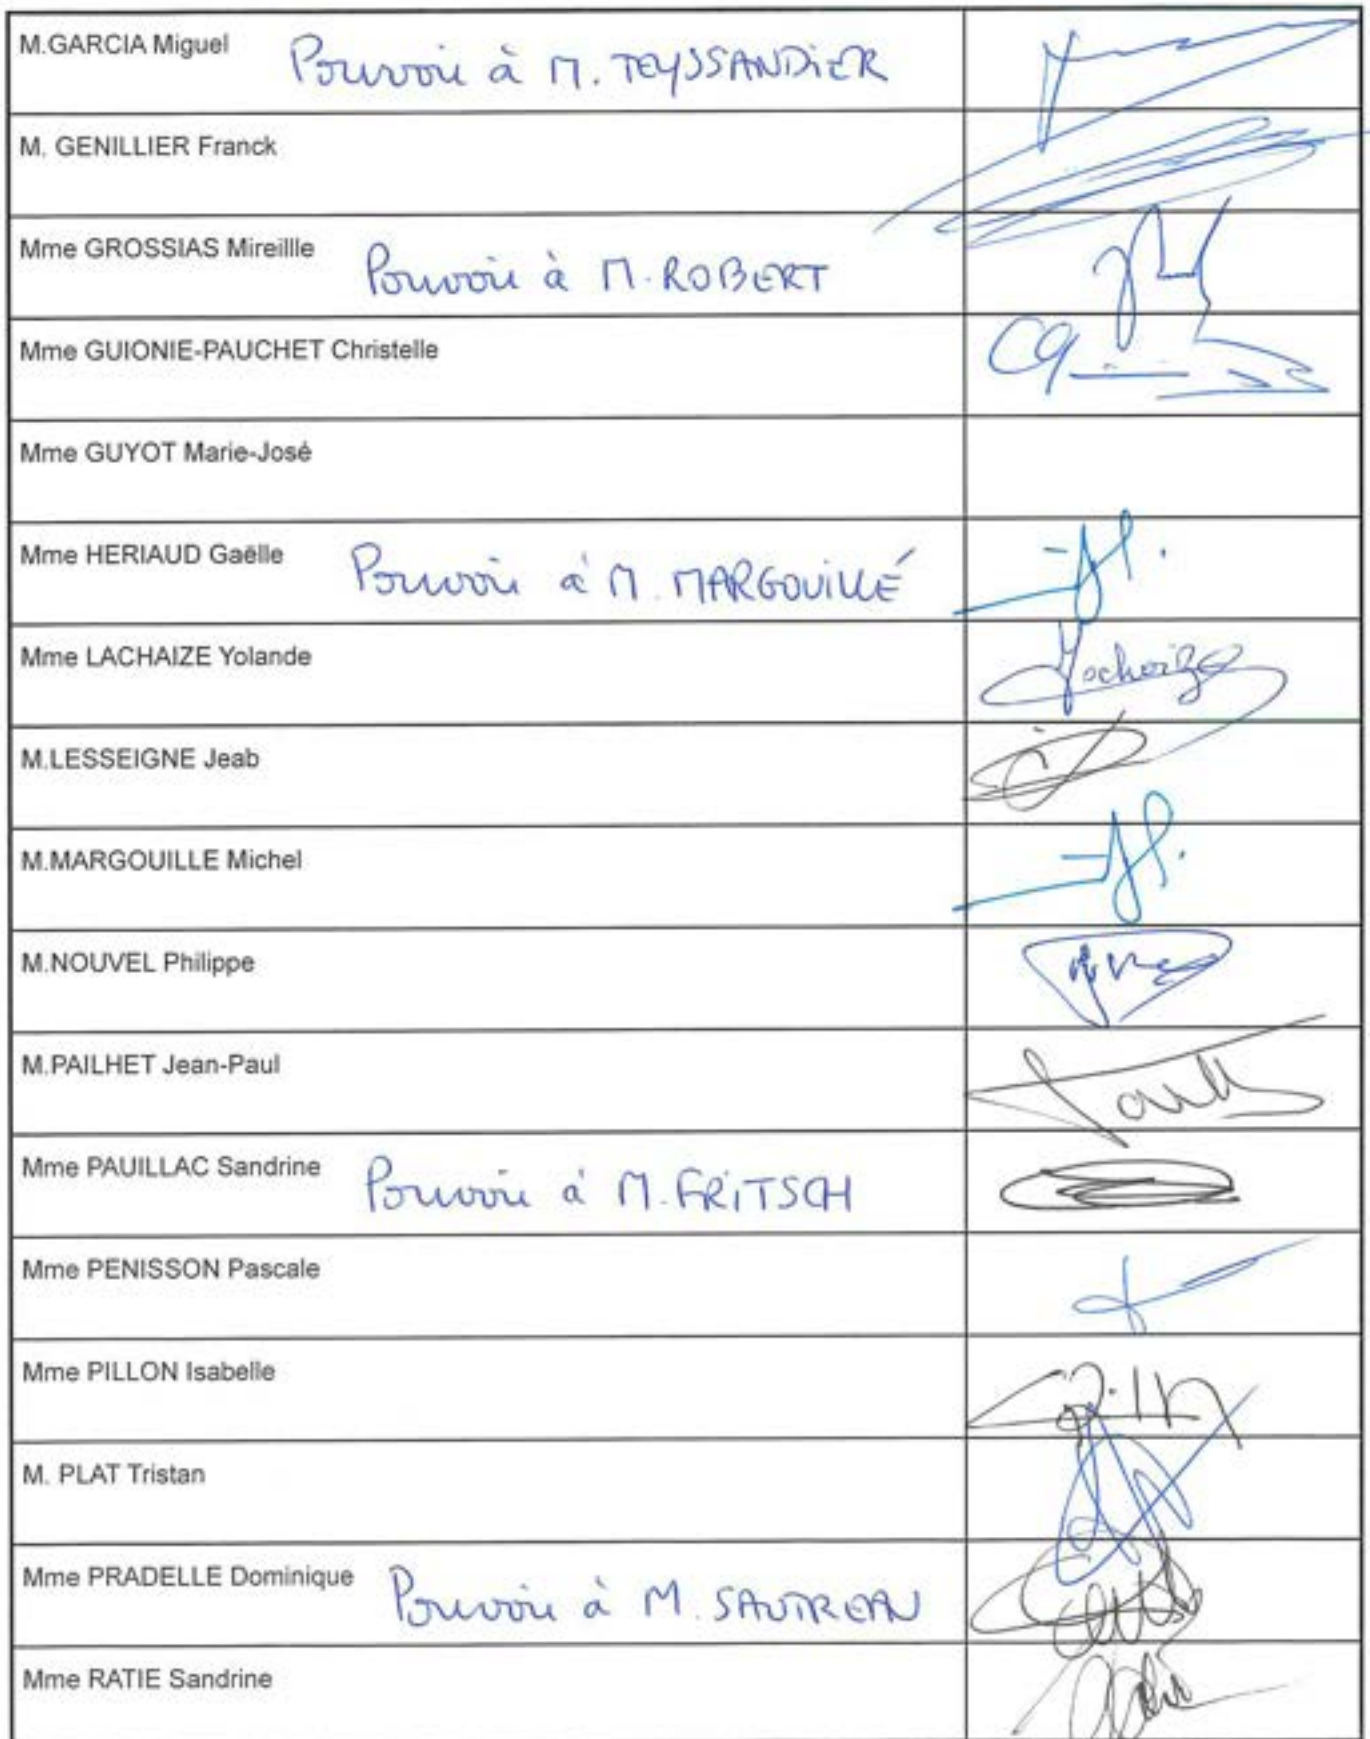 M.GARCIA Miguel Pouvoir à M. TEYSSANDIER
M. GENILLIER Franck
Mme GROSSIAS Mireillle Pouvoir à M. ROBERT
Mme GUIONIE-PAUCHET Christelle
Mme GUYOT Marie-José
Mme HERIAUD Gaëlle Pouvoir à M. MARGOUILLÉ
Mme LACHAIZE Yolande
M.LESSEIGNE Jeab
M.MARGOUILLE Michel
M.NOUVEL Philippe
M.PAILHET Jean-Paul
Mme PAUILLAC Sandrine Pouvoir à M. FRITSCH
Mme PENISSON Pascale
Mme PILLON Isabelle
M. PLAT Tristan
Mme PRADELLE Dominique Pouvoir à M. SAUTREAU
Mme RATIE Sandrine